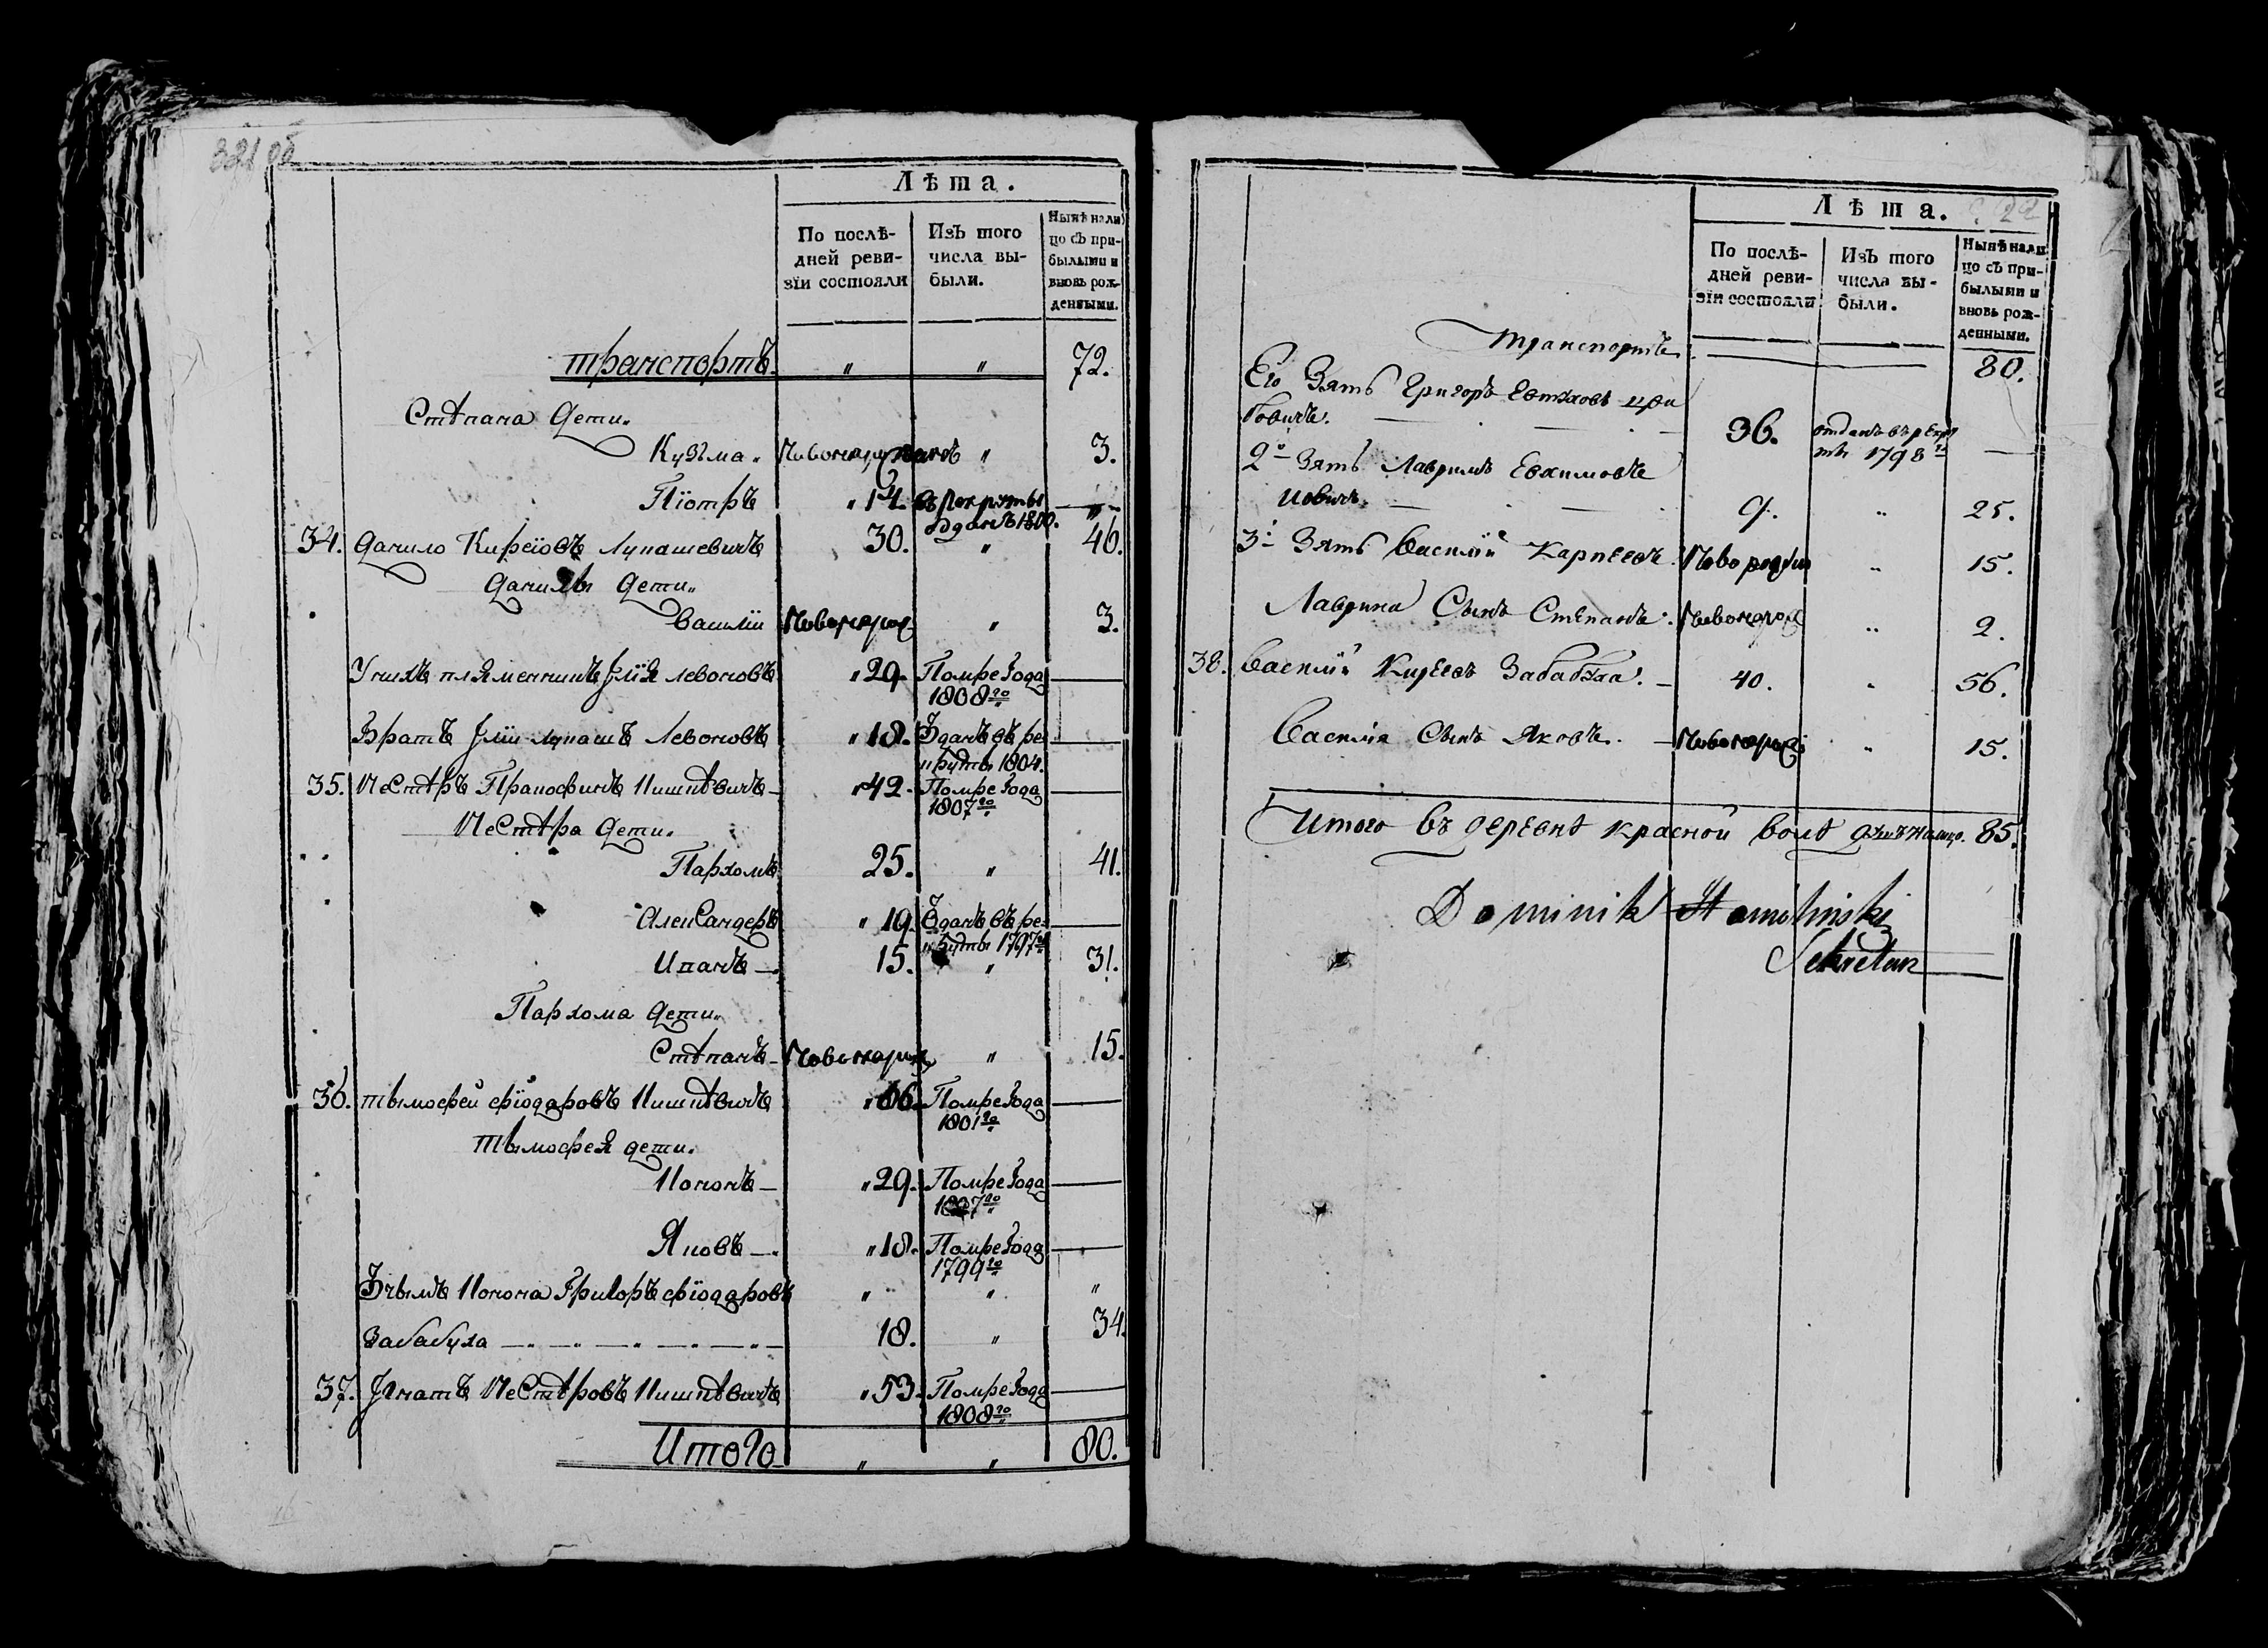 Лѣта.
По послѣ-
дней реви-
зїи состояли
Изъ того
числа вы-
были.
Нынѣ нали
цо съ при-
былыми и
вновь рож-
денными.
транспортъ " " 72.
Стѣпана Дети.
Кузма. " 3.
Пїотръ " 14. въ рекруты
зданъ 1800.
34. Данило Кирѣїовъ Лупашевичъ 30. " 46.
Данилы Дети.
Василіи Новонарод " 3.
Унихъ племенникъ Левоновъ " 29. Помре года
1808го
Братъ Лупашъ Левоновъ " 18. Зданъ въ ре
круты 1804.
35. Нестѣръ Кишкѣвичъ " 42. Помре года
1807го
Нестѣра Дети.
Пархомъ 25. " 41.
Александеръ " 19. Зданъ въ ре
круты 1797го
Иванъ 15. " 31.
Пархома Дети.
Стѣпанъ Новонарод " 15.
36. Тымофей Фїодаровъ Кишкѣвичъ " 66. Помре года
1801го
Тымофея дети.
Кононъ " 29. Помре года
1807го
Яковъ " 18. Помре года
1799го
Конона Григоръ Фїодаровъ " " "
Забабуха 18. " 34.
37. Игнатъ Нестѣровъ Кишкѣвичъ " 53. Помре года
1808го
Итого " " 80.
Лѣта.
По послѣ-
дней реви-
зїи состояли
Изъ того
числа вы-
были.
Нынѣ нали
цо съ при-
былыми и
вновь рож-
денными.
транспортъ 80.
Его Зять Григоръ Евтуховъ
36. отданъ въ рекру
ты 1798го
2о Зять Лавринъ Евхимовъ
9. " 25.
3 Зять Василій Карпеевъ. Новорожд " 15.
Лаврина Сынъ Степанъ. Новонарод " 2.
38. Василій Кирѣевъ Забабуха. 40. " 56.
Василія Сынъ Яковъ. Новонарод " 15.
Итого въ деревнѣ красной воли душъ налицо. 85.
Dominik
Sekretarz